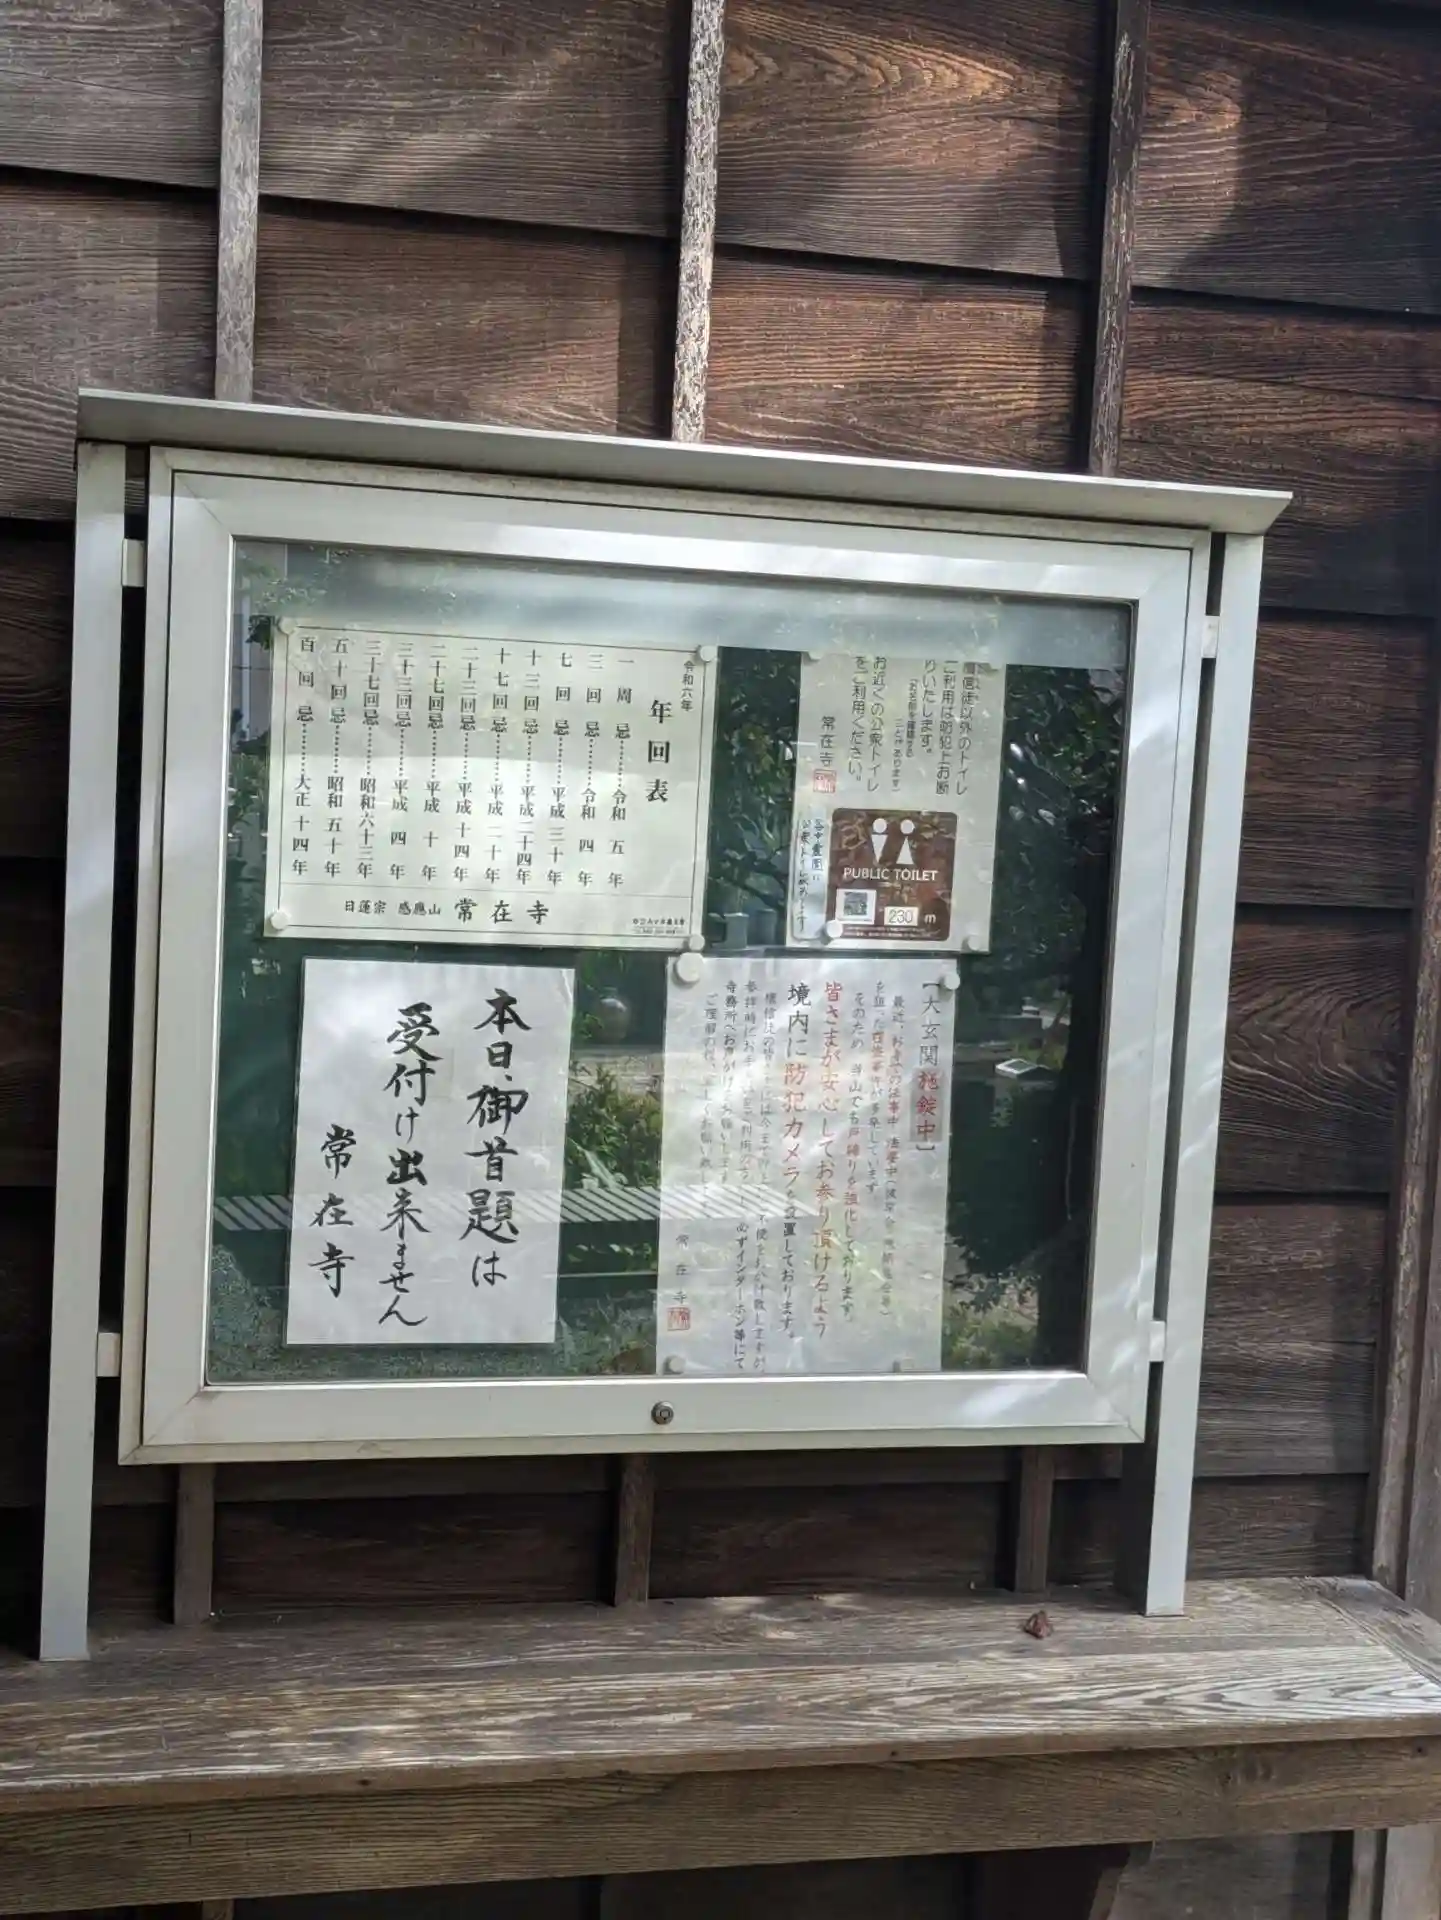 令和六年
年回表
一周忌………令和五年
三回忌………令和四年
七回忌………平成三十年
十三回忌………平成二十四年
十七回忌………平成二十年
二十三回忌………平成十四年
二十七回忌………平成十年
三十三回忌………平成四年
三十七回忌………昭和六十三年
五十回忌………昭和五十年
百回忌………大正十四年
日蓮宗 感應山 常在寺
檀信徒以外のトイレ
ご利用は防犯上お断
りいたします。
お近くの公衆トイレ
をご利用ください。
常在寺
谷中霊園に
公衆トイレがあります
PUBLIC TOILET
230 m
本日、御首題は
受付け出来ません
常在寺
【大玄関施錠中】
を狙った窃盗事件が多発しています。
そのため、当山でも戸締りを強化しております。
皆さまが安心してお参り頂けるよう
境内に防犯カメラを設置しております。
寺務所へお声がけをお願いします。
常在寺